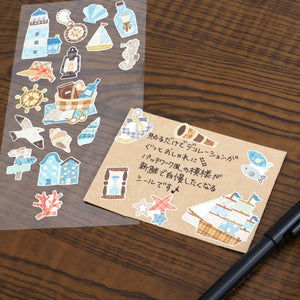 貼るだけでデコレーションが
ぐっとおしゃれに
パッチワーク風の模様が
新鮮で自慢したくなる
シールです♪